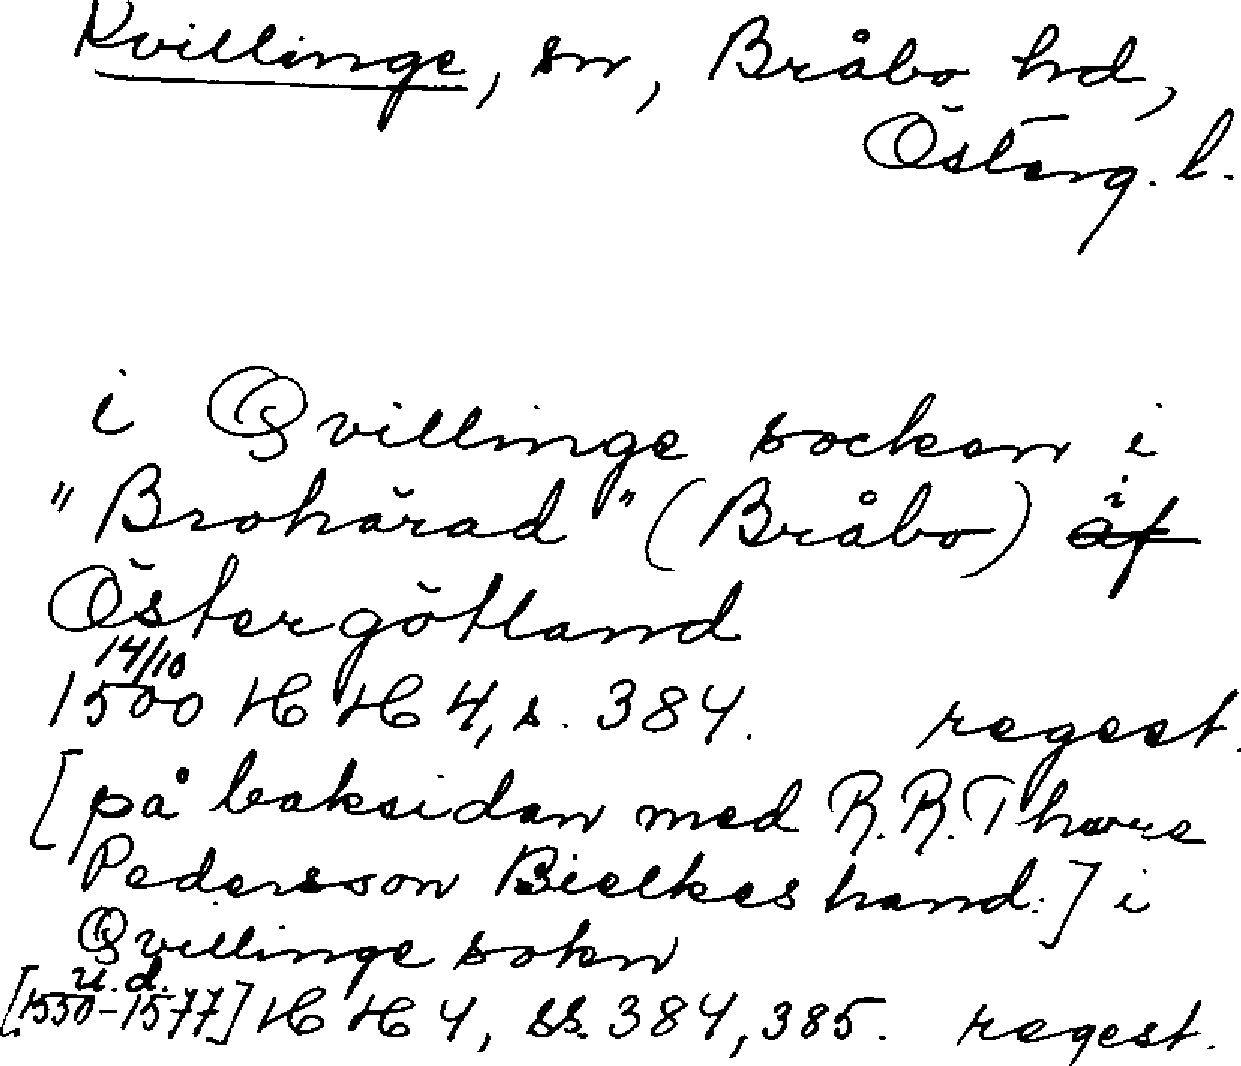 Kvillinge, sn, Bråbo hd,
Österg. l.
i Qvillinge socken i
"Brohärad" (Bråbo) i af
Östergötland
14/10
1500 HH 4, s. 384. regest.
[på baksidan med R.R. Thure
Pedersson Bielkes hand:] i
Qvillinge sokn
u.d.
[1550-1577] HH 4, ss. 384, 385. regest.